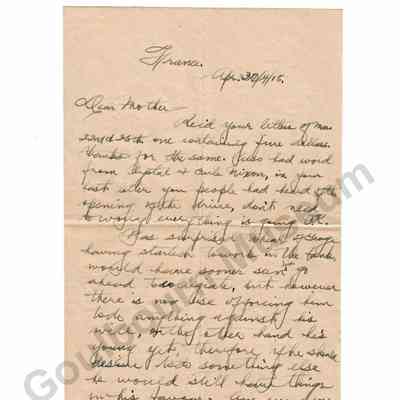 France.
Apr. 30/1918.
Dear Mother
Rec'd your letters of Mar.
22nd & 25th one containing five dollars.
thanks for the same. also had word
from & Nixon, in your
last letter you people had heard of the
opening of the drive, don't need
to worry everything is going O.K.
Was surprised to hear of George
having started to work in the bank
would have sooner seen go
ahead to collegiate, but however
there is no use of forcing him
to do anything against his
will, on the other hand he's
young yet, therefore if he should
desire to do something else
he would still have things
in his favour.